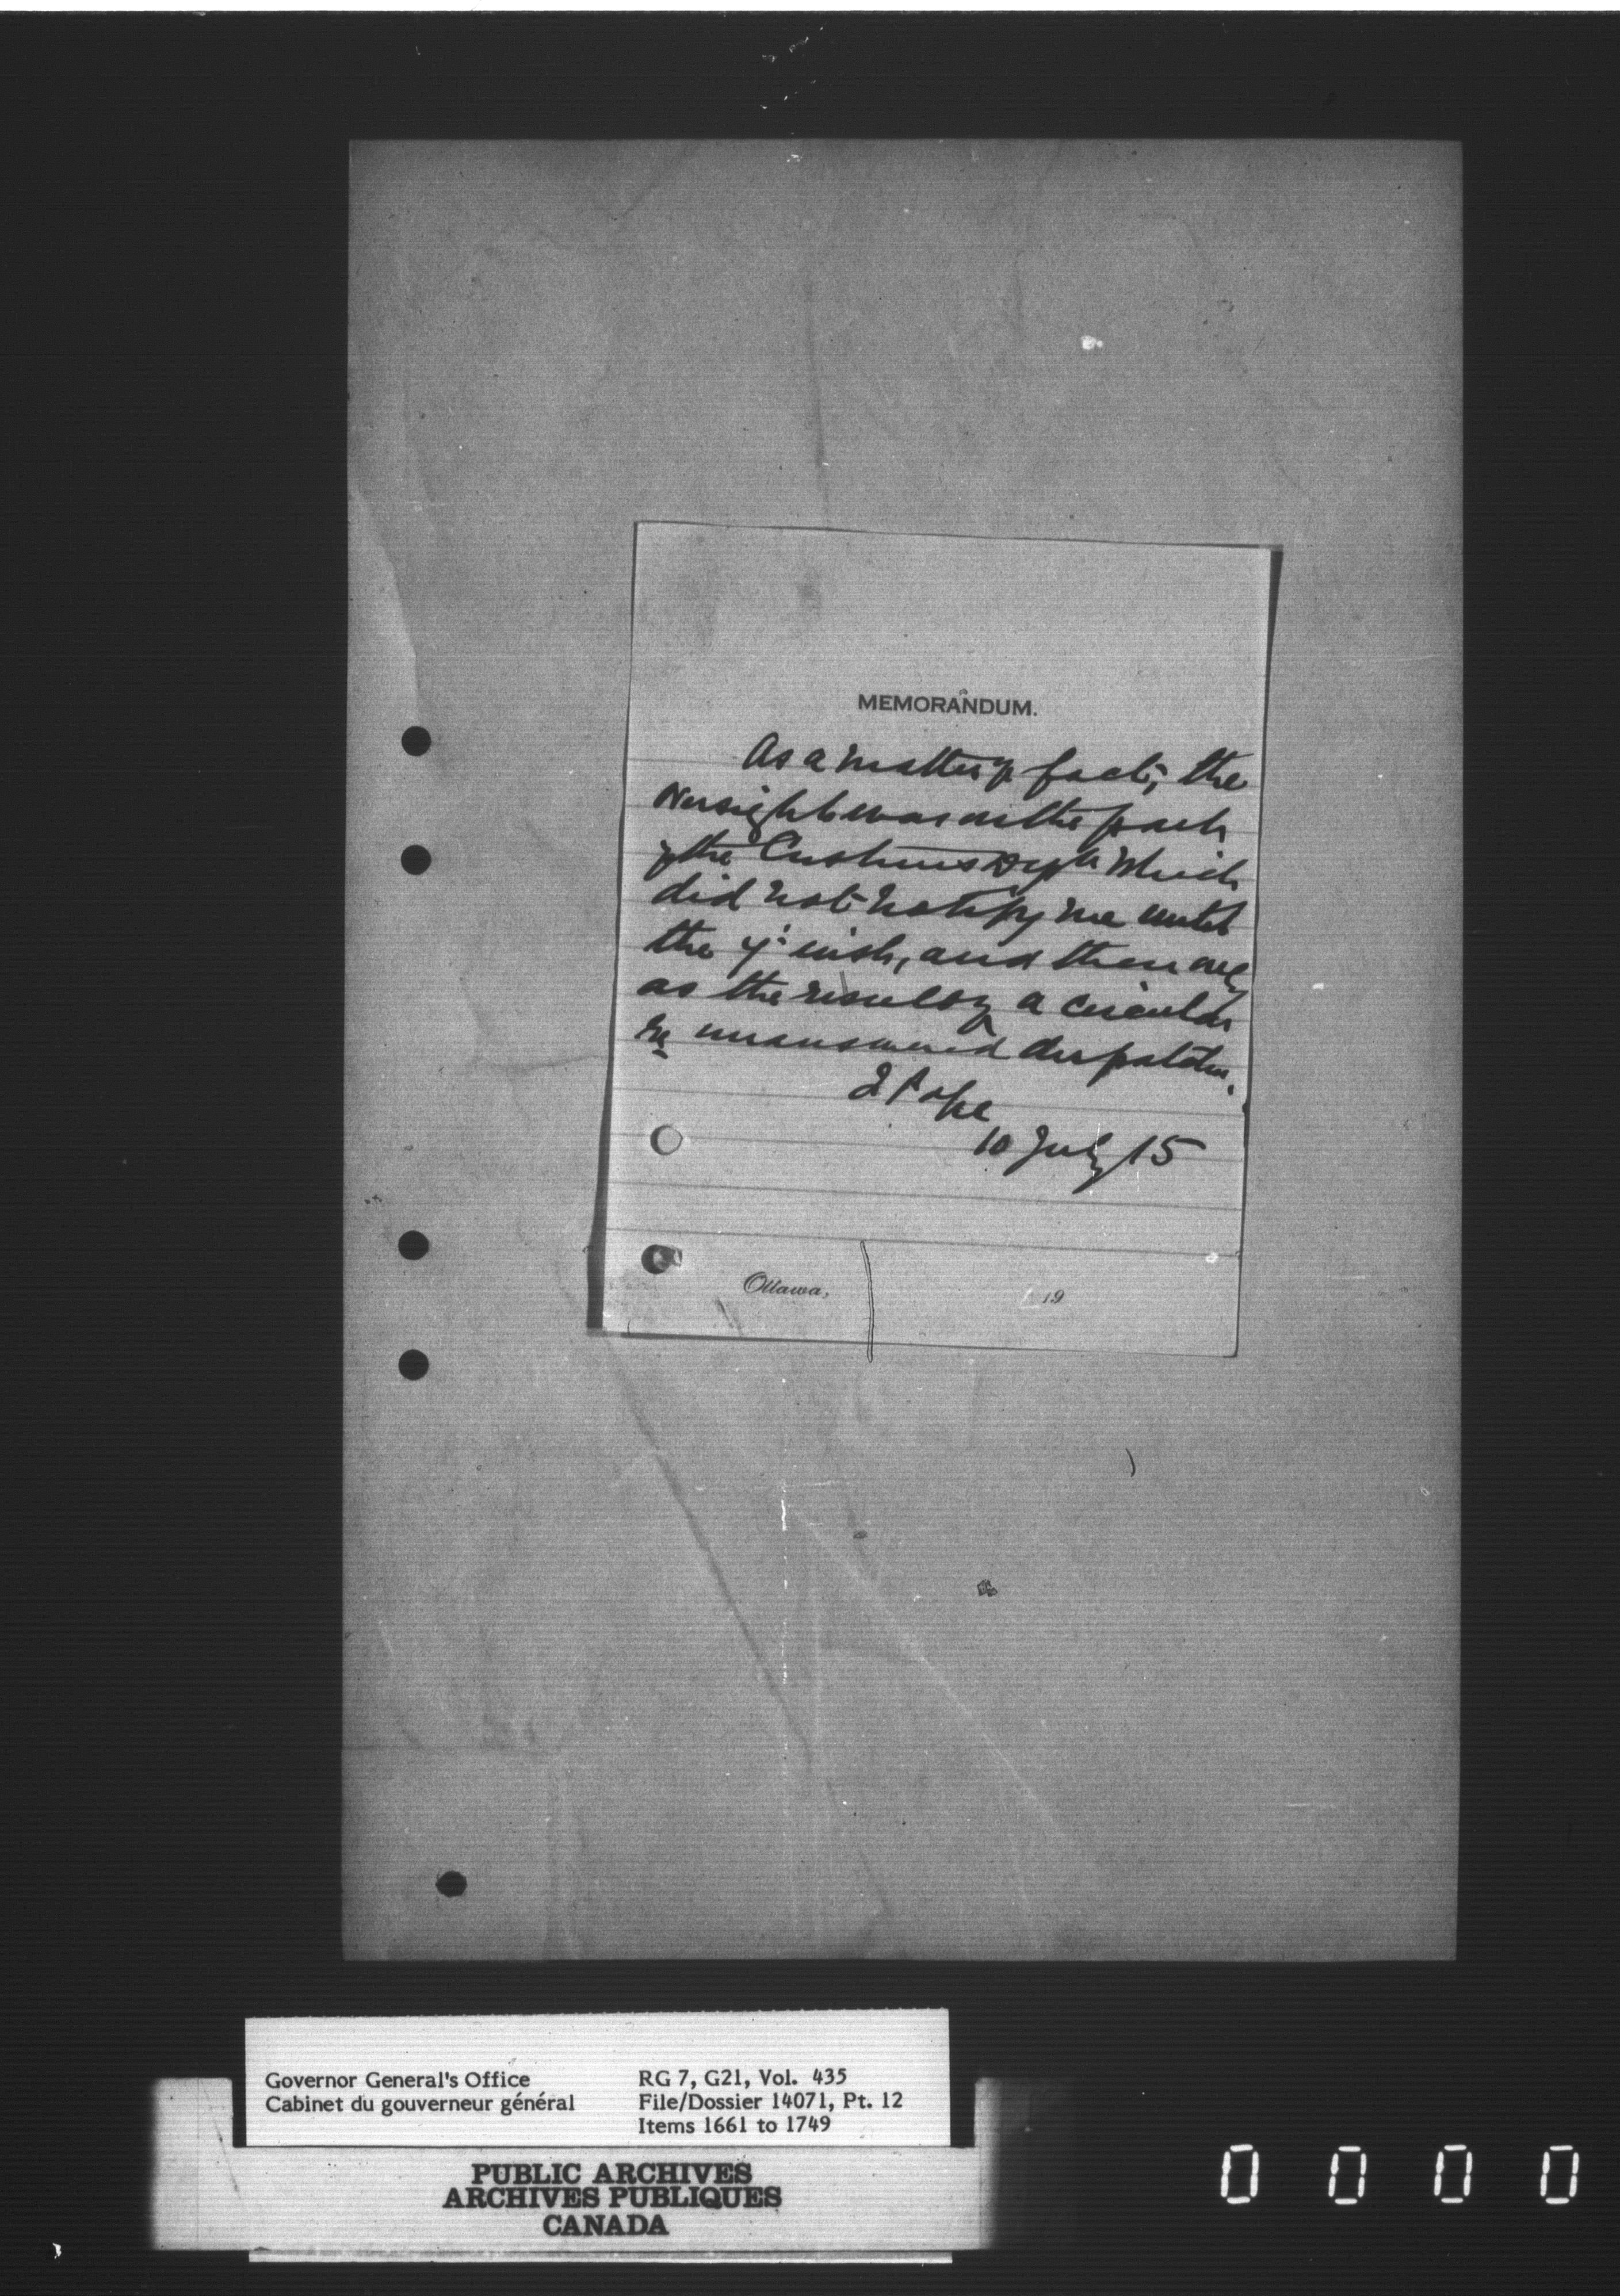 MEMORANDUM.
As a matter of fact, the
oversight was on the part
of the Customs Dept which
did not notify me until
the inst, and then only
as the result of a circular
re unanswered despatches.
J Pope
10 July 15
Ottawa, 19
Governor General's Office
Cabinet du gouverneur général
RG 7, G21, Vol. 435
File/Dossier 14071, Pt. 12
Items 1661 to 1749
PUBLIC ARCHIVES
ARCHIVES PUBLIQUES
CANADA
0 0 0 0